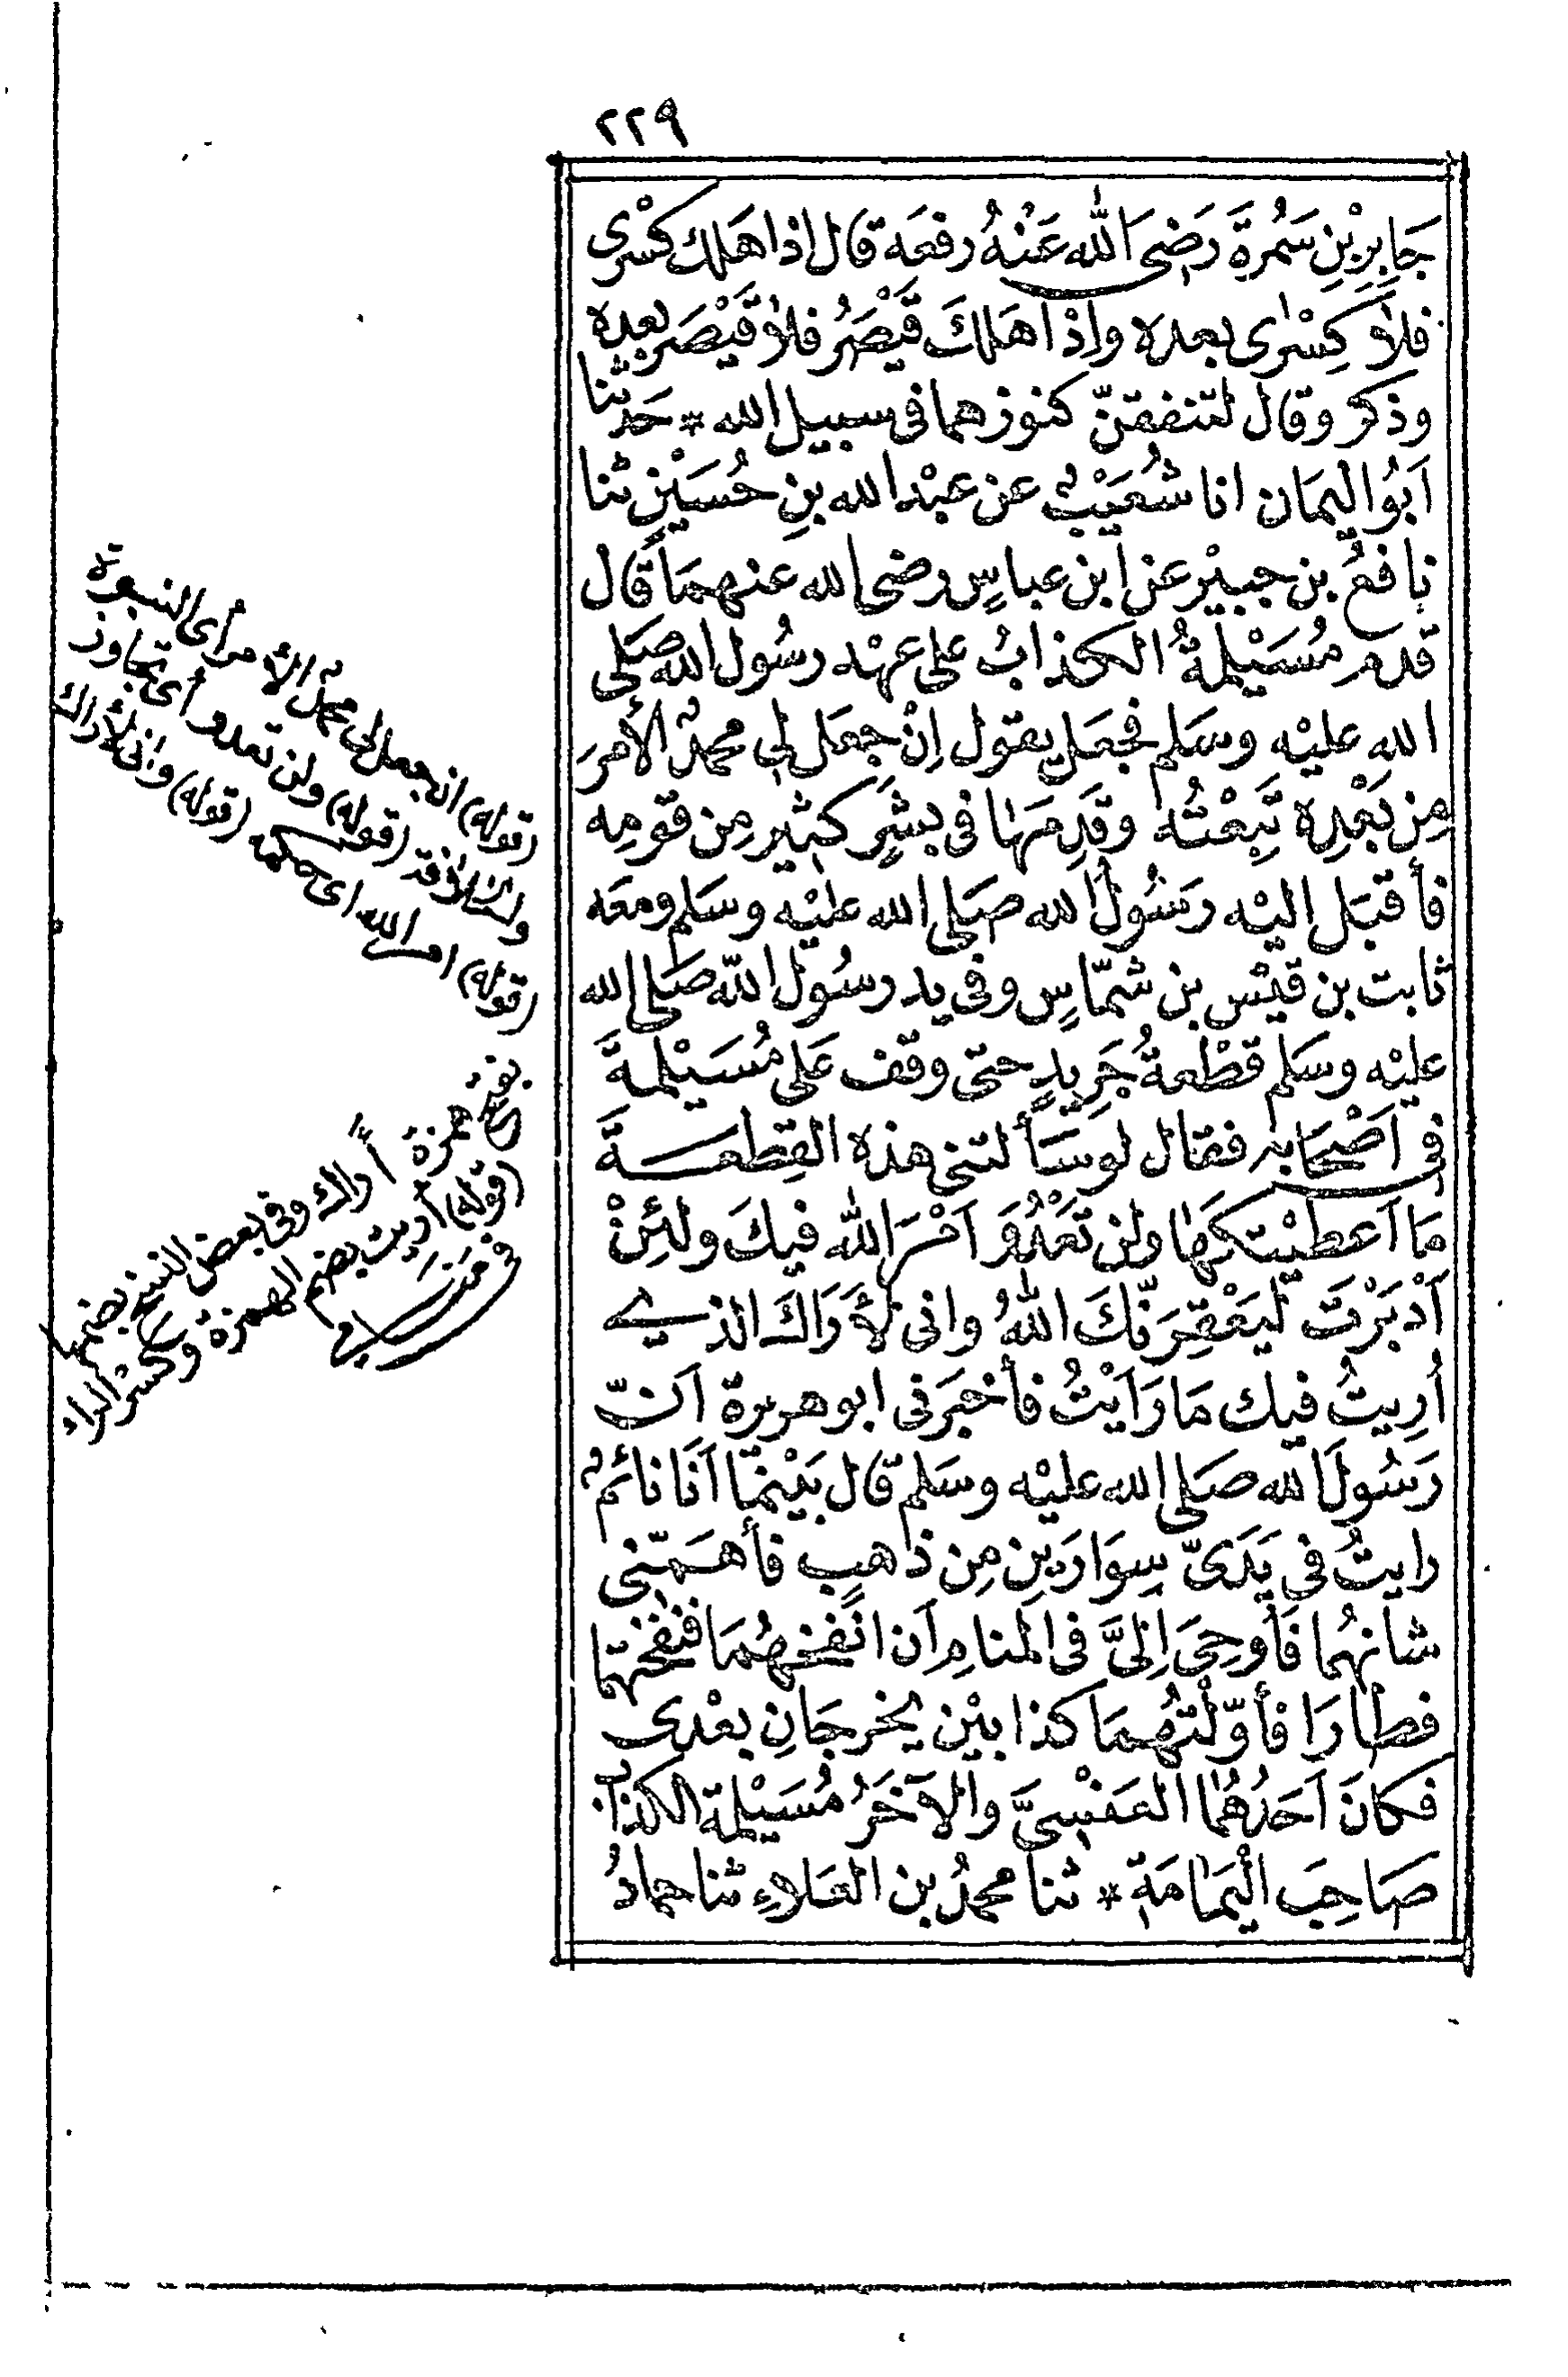 ٢٢٩
جَابِرِ بْنِ سَمُرَةَ رَضِىَ اللهُ عَنْهُ رفعَه قال اذا هَلك كسْرى
فلَا كِسْرٰى بعده وإذْا هَلكَ قَيْصَرُ فلَا قَيْصَر بعده
وذكر وقال لتنفقنّ كنوزهما فى سبيل الله * حَدثنا
اَبُو اليَمَان انا شُعَيْبٌ عن عبْد الله بنِ حُسَيْنٍ ثنا
نافعُ بن جبيْر عن ابن عباسٍ رضى الله عنهمَا قَال
قدم مُسَيْلِمةُ الكذابُ على عهْد رسُول الله صَلى
الله عليْه وسَلم فجعَل يقول اِنْ جعَل لى محمدٌ الأمرَ
مِن بَعْدِه تَبِعْتُه وقَدِمَهٰا فى بشَرٍ كثير مِن قومِه
فأقبَل اليْه رَسُولُ الله صَلى الله عليْه وسَلم ومعَه
ثابت بن قيْس بن شمّاسٍ وفى يد رسُول اللّه صَلى الله
عليْه وسَلم قطْعةُ جَرِيدٍ حتى وقف عَلى مُسَيْلمةَ
فى اَصْحَابه فقال لو سَألتنى هذه القِطعَةَ
مَا اَعطيْتكهَا ولن تَعْدُوَ اَمْرَ اللّه فيكَ ولئِنْ
اَدْبَرْتَ ليَعْقِرَنّكَ اللّهُ وانى لأَرَاكَ الذى
اُرِيتُ فيك مَا رَاَيْتُ فأخبَرنى ابو هريرة اَنّ
رَسُولَ الله صَلى الله عليْه وسَلم قال بَيْنمَا اَنَا نائمٌ
رايتُ فى يَدَىّ سِوَارَيْنِ مِن ذَهبٍ فأهَمّنى
شانهُما فَأُوحِىَ اِلىَّ فى المنامِ اَن انفخهُمَا فنفختهما
فطارَا فأوّلْتهُمَا كذابيْن يخرجَانِ بعْدى
فكانَ اَحَدُهُمٰا العَنْسِىَّ والآخَرُ مُسَيْلمة الكذاب
صَاحِبَ الْيَمٰامَةِ * ثنا محمدُ بن العَلاءِ ثنا حمادُ
(قوله) ان جعل لى محمدٌ الأمر أى النبوة
(قوله) ولن تعدو أى تجاوز
(قوله) امر الله اى حكمه (قوله) وانى لأراك
همزة أراك وفى بعض النسخ بضمها
(قوله) أريت بضم الهمزة وكسْر الراء
فى منَامى